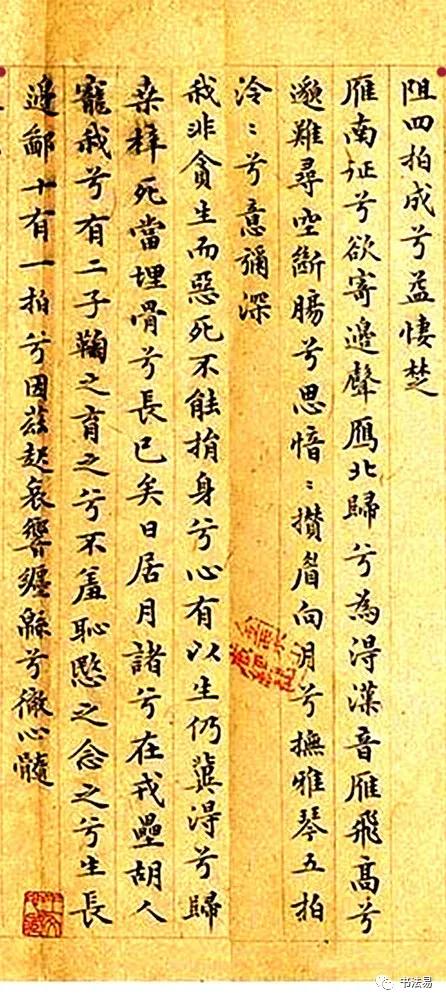 阻四拍成兮益悽楚
雁南征兮欲寄邊聲鴈北歸兮為得漢音雁飛高兮
邈難尋空斷腸兮思愔〻攢眉向月兮撫雅琴五拍
泠〻兮意彌深
我非貪生而惡死不能捐身兮心有以生仍冀得兮歸
桑梓死當埋骨兮長已矣日居月諸兮在戎壘胡人
寵我兮有二子鞠之育之兮不羞恥愍之念之兮生長
邊鄙十有一拍兮因茲起哀響纏綿兮徹心髓
书法易